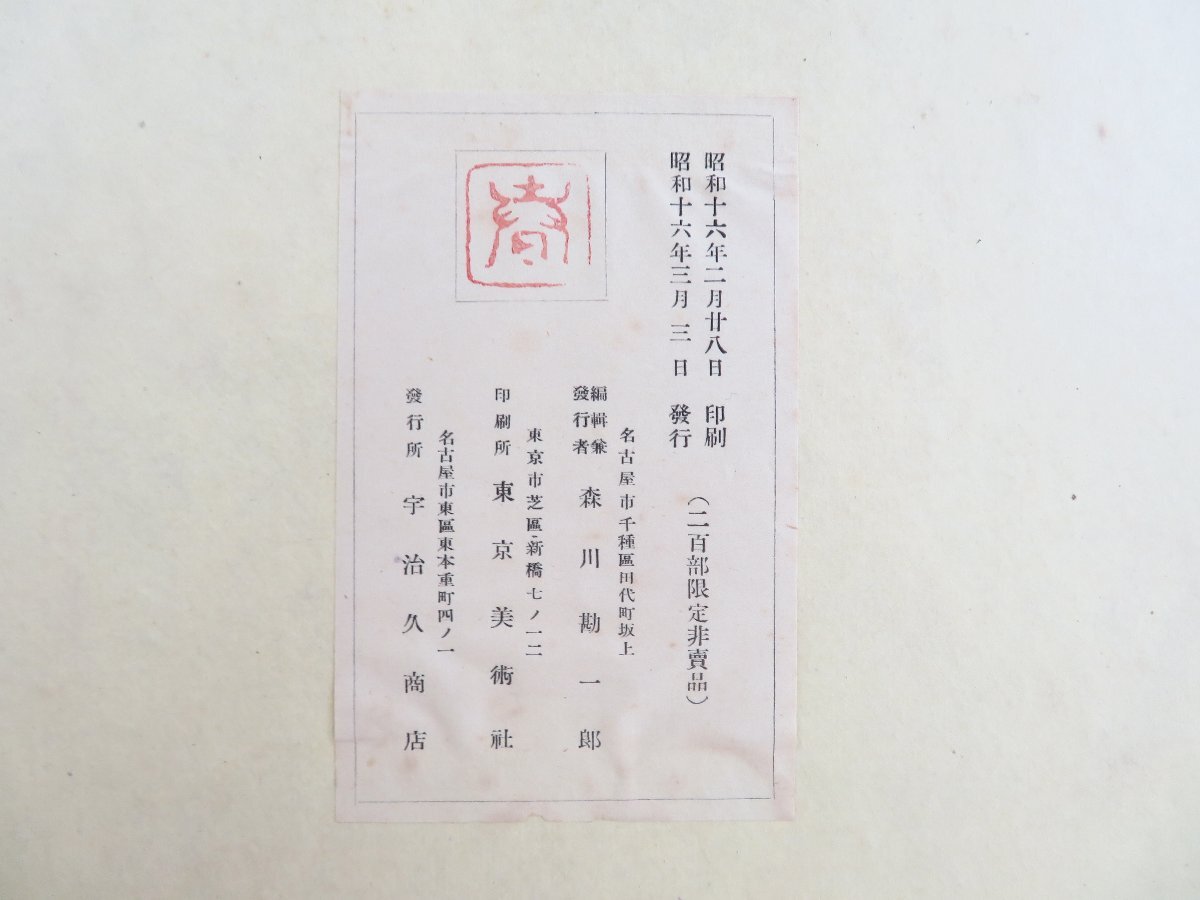 昭和十六年二月廿八日 印刷
昭和十六年三月三日 發行
（二百部限定非賣品）
名古屋市千種區田代町坂上
編輯兼發行者 森川勘一郎
東京市芝區新橋七ノ一二
印刷所 東京美術社
名古屋市東區東本重町四ノ一
發行所 宇治久商店